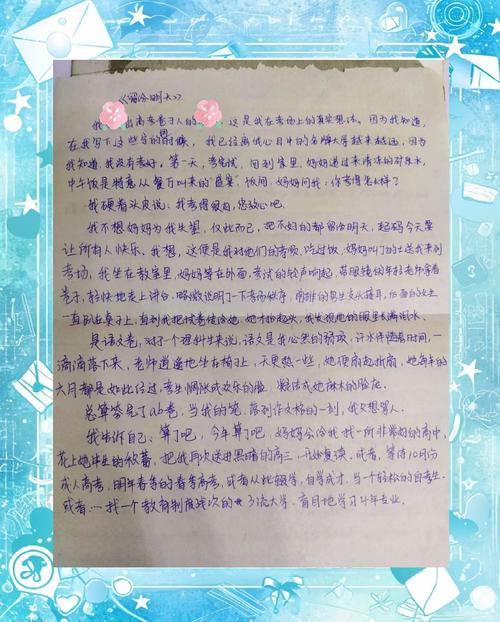 《留给明天》
我 出高考卷子人的 这是我在考场上的真实想法。因为我知道,
在我写下这些字的时候,我已经离我心目中的名牌大学越来越远,因为
我知道,我没有考好。第一天,考完试,回到家里,妈妈递过来清凉的矿泉水,
中午饭是特意从餐厅叫来的"盛宴",饭间,妈妈问我,你考得怎么样?
我硬着头皮说:我考得很好,您放心吧。
我不想妈妈为我失望,仅此而已,把不好的都留给明天,起码今天要
让所有人快乐。我想,这便是我对他们的孝顺,吃过饭,妈妈叫了的士送我来到
考场,我坐在教室里,妈妈等在外面,考试的铃声响起,带眼镜的年轻老师拿着
卷子,轻快地走上讲台,略微说明了一下考场秩序,前排的男生交头接耳,后面的女生
一直趴在桌子上,直到我把试卷传给她,她才抬起头,我发现她的眼里满泪水
是语文卷,对于一个理科生来说,语文是我心里的弱项,汗水伴随着时间,一
滴滴落下来,老师逍遥地坐在椅子上,天更热一些,她便扇起折扇,她每年的
六月都是如此经过,考生惆怅或欢乐的脸,凝结成她麻木的脸庞。
总算答完了ab卷,当我的笔,落到作文格的一刻,我只想骂人。
我告诉自己,算了吧,今年算了吧,妈妈会给我找一所非常好的高中,
花上她半生的积蓄,把我再次送进黑暗的高三,开始复读。或者,等待10月份
成人高考,明年春季的春季高考,或者从此辍学,自学成才,当一个轻松的自考生。
或者…找一个教育制度残次的 3流大学,盲目地学习4年专业。